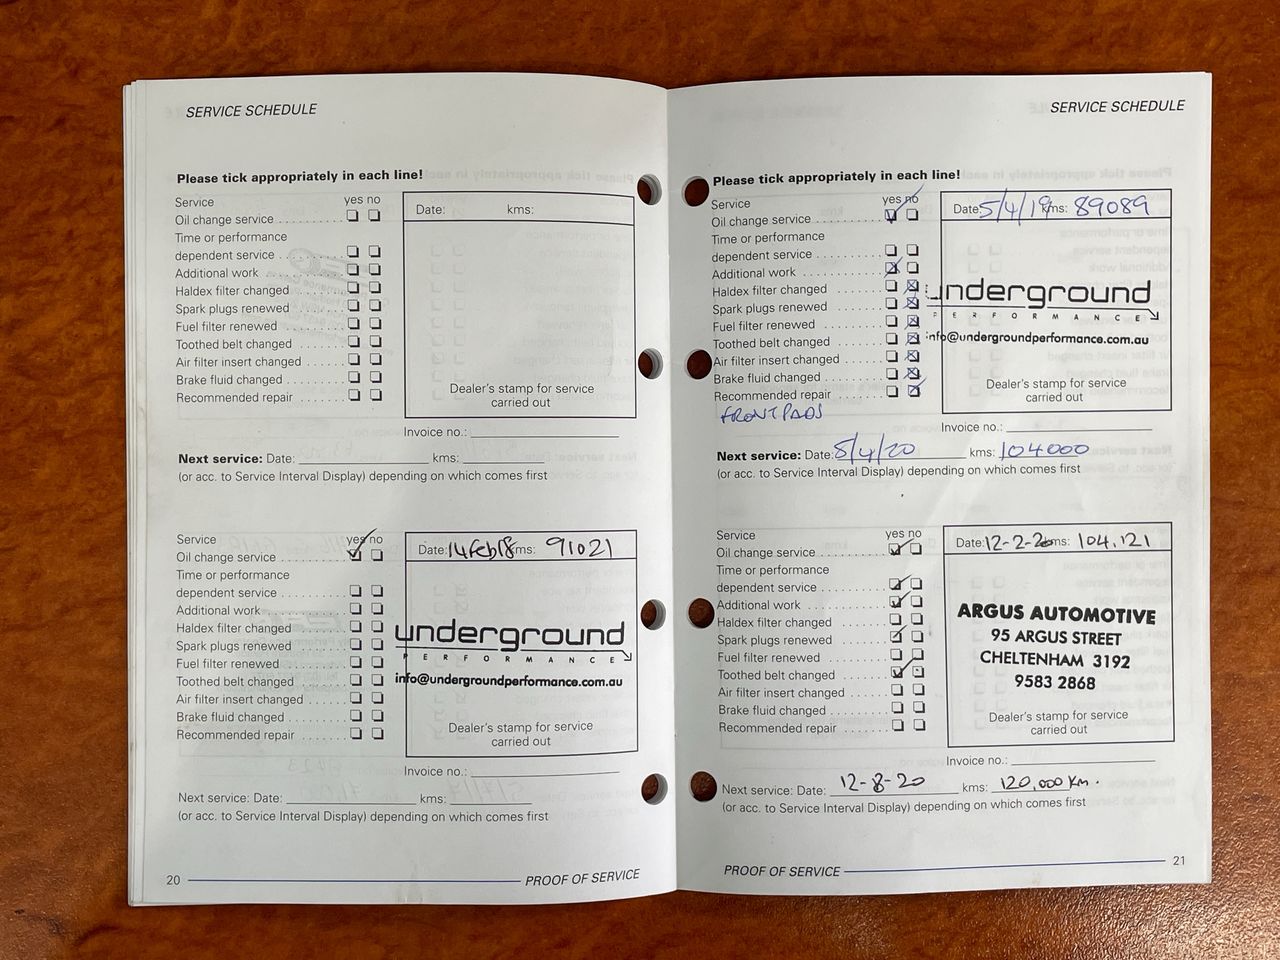 SERVICE SCHEDULE
Please tick appropriately in each line!
Service yes no
Oil change service
Time or performance
dependent service
Additional work
Haldex filter changed
Spark plugs renewed
Fuel filter renewed
Toothed belt changed
Air filter insert changed
Brake fluid changed
Recommended repair
Date: kms:
Dealer's stamp for service
carried out
Invoice no.:
Next service: Date: kms:
(or acc. to Service Interval Display) depending on which comes first
Service yes no
Oil change service
Time or performance
dependent service
Additional work
Haldex filter changed
Spark plugs renewed
Fuel filter renewed
Toothed belt changed
Air filter insert changed
Brake fluid changed
Recommended repair
Date: 14 Feb 18 kms: 91021
underground
PERFORMANCE
info@undergroundperformance.com.au
Dealer's stamp for service
carried out
Invoice no.:
Next service: Date: kms:
(or acc. to Service Interval Display) depending on which comes first
20 PROOF OF SERVICE
SERVICE SCHEDULE
Please tick appropriately in each line!
Service yes no
Oil change service
Time or performance
dependent service
Additional work
Haldex filter changed
Spark plugs renewed
Fuel filter renewed
Toothed belt changed
Air filter insert changed
Brake fluid changed
Recommended repair
FRONT PADS
Date: 5/4/19 kms: 89089
underground
PERFORMANCE
info@undergroundperformance.com.au
Dealer's stamp for service
carried out
Invoice no.:
Next service: Date: 5/4/20 kms: 104000
(or acc. to Service Interval Display) depending on which comes first
Service yes no
Oil change service
Time or performance
dependent service
Additional work
Haldex filter changed
Spark plugs renewed
Fuel filter renewed
Toothed belt changed
Air filter insert changed
Brake fluid changed
Recommended repair
Date: 12-2-20 kms: 104,121
ARGUS AUTOMOTIVE
95 ARGUS STREET
CHELTENHAM 3192
9583 2868
Dealer's stamp for service
carried out
Invoice no.:
Next service: Date: 12-8-20 kms: 120,000 Km.
(or acc. to Service Interval Display) depending on which comes first
PROOF OF SERVICE 21